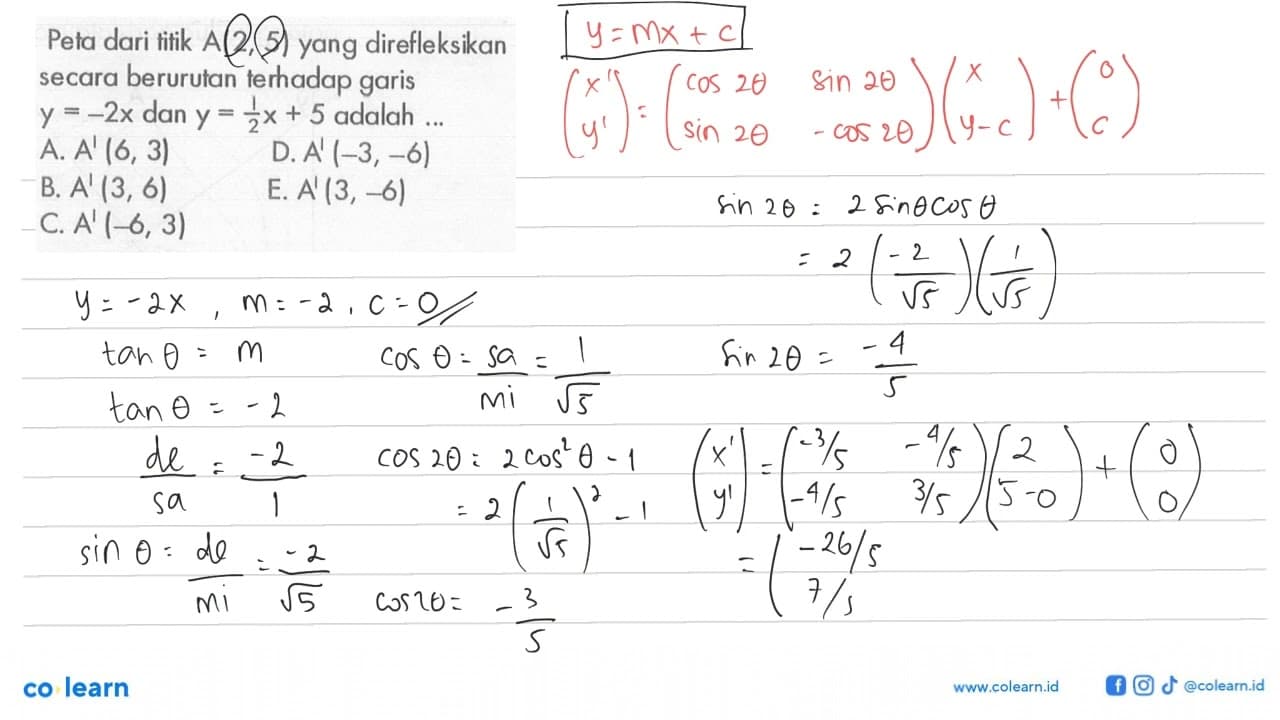 Peta dari titik A(2, 5) yang direfleksikan
secara berurutan terhadap garis
y = –2x dan y = 1/2 x + 5 adalah ...
A. A' (6, 3) D. A' (–3, –6)
B. A' (3, 6) E. A' (3, –6)
C. A' (–6, 3)
y = mx + c
(x' y') = (cos 2θ sin 2θ sin 2θ - cos 2θ) (x y-c) + (0 c)
y = -2x , m = -2 , c = 0
tan θ = m
tan θ = -2
de/sa = -2/1
sin θ = de/mi = -2/√5
cos θ = sa/mi = 1/√5
cos 2θ = 2cos² θ - 1
= 2 (1/√5)² - 1
cos 2θ = -3/5
sin 2θ = 2 sin θ cos θ
= 2 (-2/√5) (1/√5)
sin 2θ = -4/5
(x' y') = (-3/5 -4/5 -4/5 3/5) (2 5-0) + (0 0)
= (-26/5 7/5
co learn
www.colearn.id @colearn.id